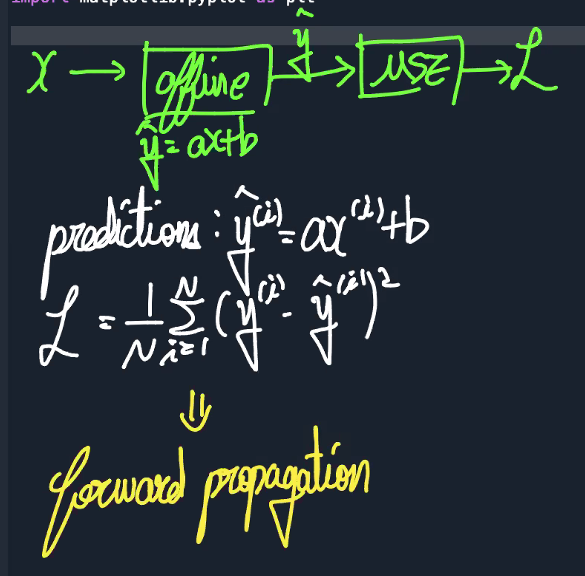 import matplotlib.pyplot as plt
X → affine ŷ → MSE → L
ŷ = ax+b
predictions : ŷ⁽ⁱ⁾ = ax⁽ⁱ⁾ + b
L = 1/N Σᵢ₌₁ᴺ (y⁽ⁱ⁾ - ŷ⁽ⁱ⁾)²
⇓
forward propagation